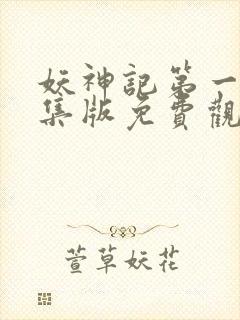 妖神記第一
集版免費觀
萱草妖花